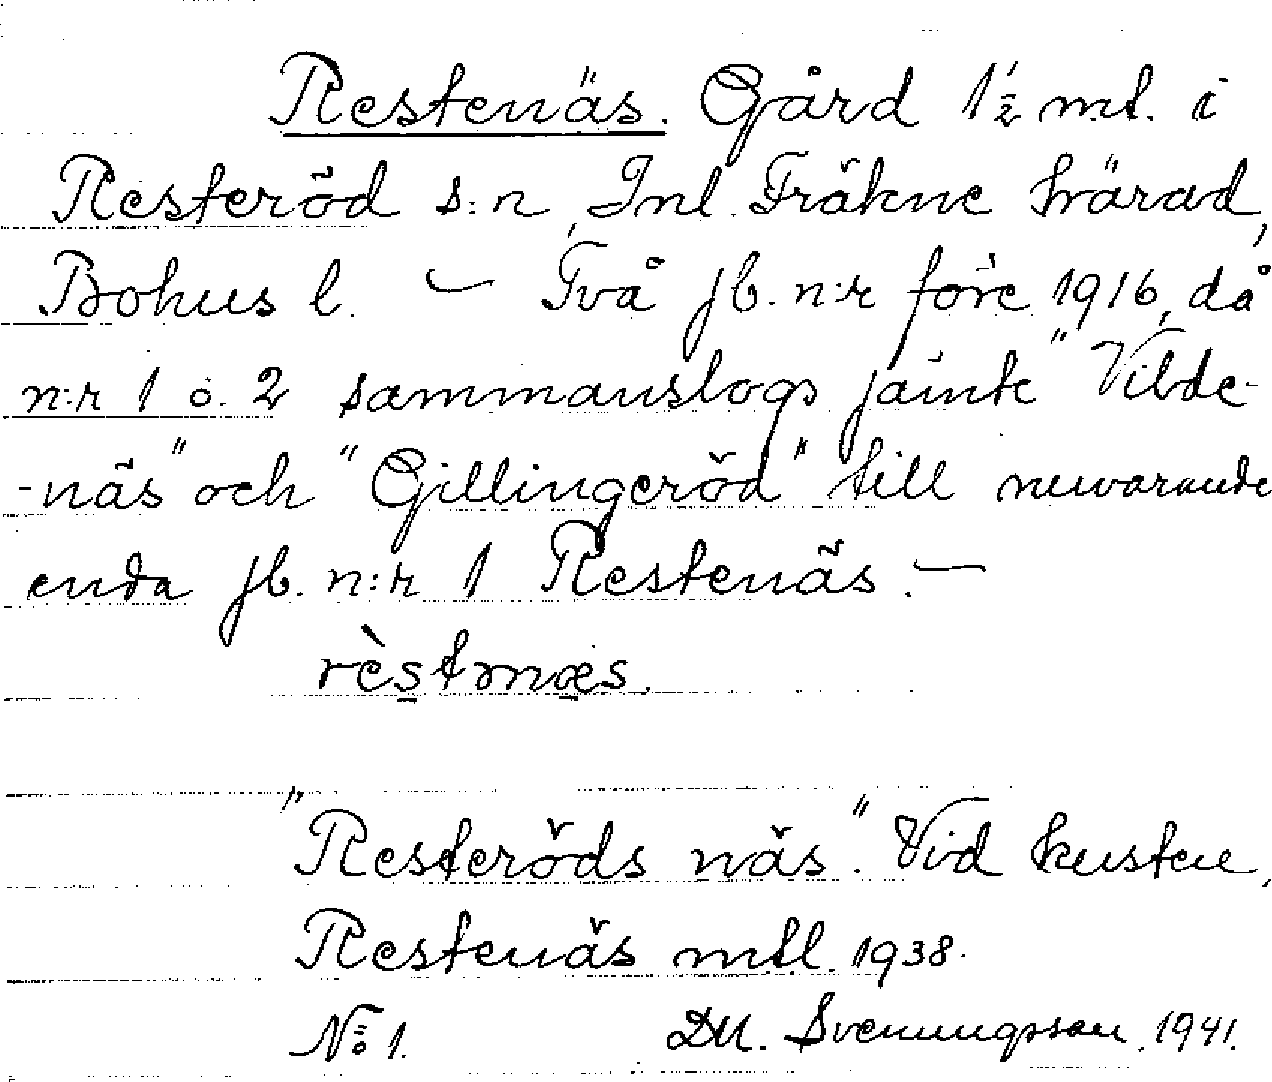 Restenäs. Gård 1 1/2 mtl. i
Resteröd s:n, Inl. Fräkne härad,
Bohus l. – Två jb. n:r före 1916, då
n:r 1 o. 2 sammanslogs jämte "Vilde-
-näs" och "Gillingeröd" till nuvarande
enda jb. n:r 1 Restenäs. –
rèstnæs.
"Resteröds näs". Vid kusten,
Restenäs mtl. 1938.
No 1. DM. Svenungsson, 1941.